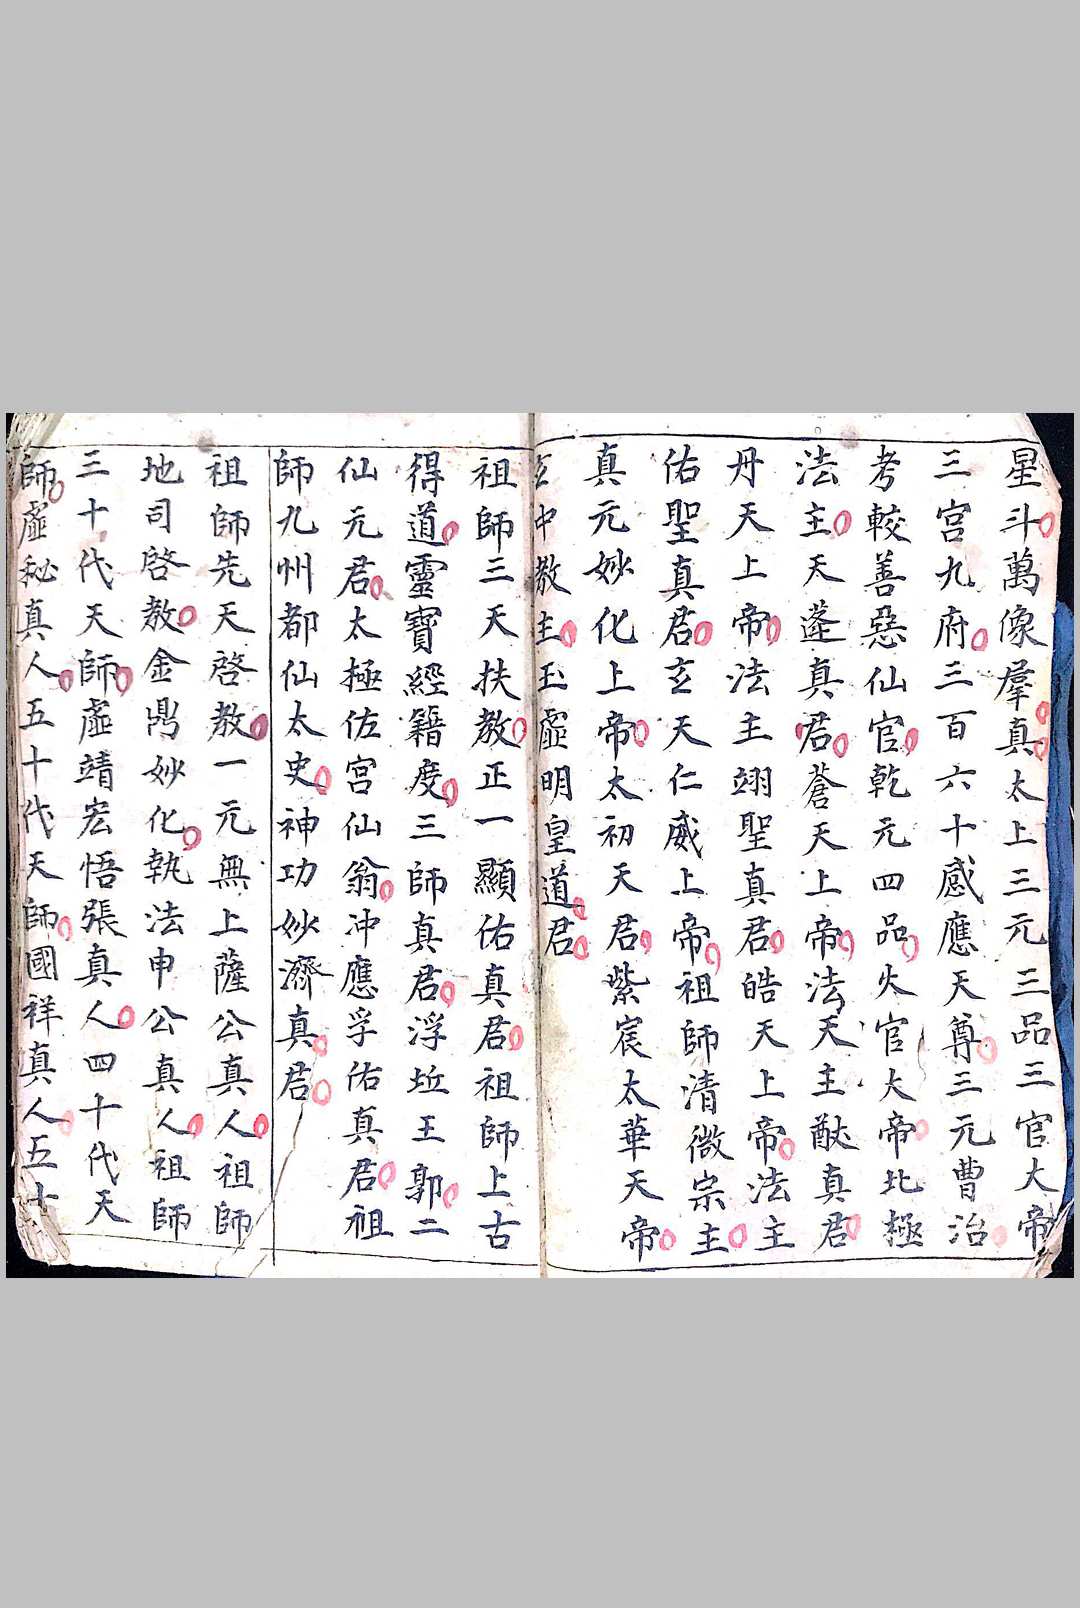 星斗萬像羣真太上三元三品三官大帝
三宮九府三百六十感應天尊三元曹治
考較善惡仙官乾元四品火官大帝北極
法主天蓬真君蒼天上帝法天主猷真君
丹天上帝法主翊聖真君皓天上帝法主
佑聖真君玄天仁威上帝祖師清微宗主
真元妙化上帝太初天君紫宸太華天帝
玄中教主玉虛明皇道君
祖師三天扶教正一顯佑真君祖師上古
得道靈寶經籍度三師真君浮坵王郭二
仙元君太極佐宮仙翁冲應孚佑真君祖
師九州都仙太史神功妙濟真君
祖師先天啓教一元無上薩公真人祖師
地司啓教金鼎妙化執法申公真人祖師
三十代天師虛靖宏悟張真人四十代天
師虛秘真人五十代天師國祥真人五十